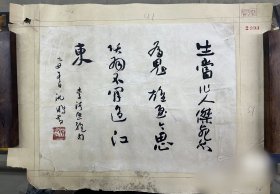 生當作人傑死亦
為鬼雄至今思
項羽不肯過江
東
李清照絕句